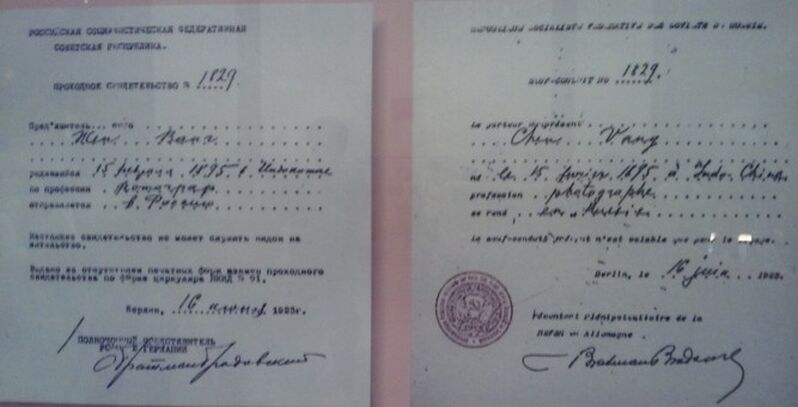 РОССИЙСКАЯ СОЦИАЛИСТИЧЕСКАЯ ФЕДЕРАТИВНАЯ
СОВЕТСКАЯ РЕСПУБЛИКА.
ПРОХОДНОЕ СВИДЕТЕЛЬСТВО № 1829
Пред'явитель
Жен Ванг
родившийся 15 1895 г. Индокитае
по профессии Фотограф
отправляется в Россию
Настоящее свидетельство не может служить видом на
жительство.
Выдано за отсутствием печатных форм взамен проходного
свидетельства по форме циркуляра НКИД № 91.
Берлин, 16 июня 1923г.
ПОЛНОМОЧНЫЙ ПРЕДСТАВИТЕЛЬ
ГЕРМАНИИ
Братман-Бродовский
SAUF-CONDUIT NO 1829
Le porteur du présent
Chen Vang
né le 15 1895 à Indo Chine
profession photographe
se rend en Russie
Le sauf-conduit présent n'est valable que pour le voyage.
Berlin, le 16 juin 1923.
de la
en Allemagne